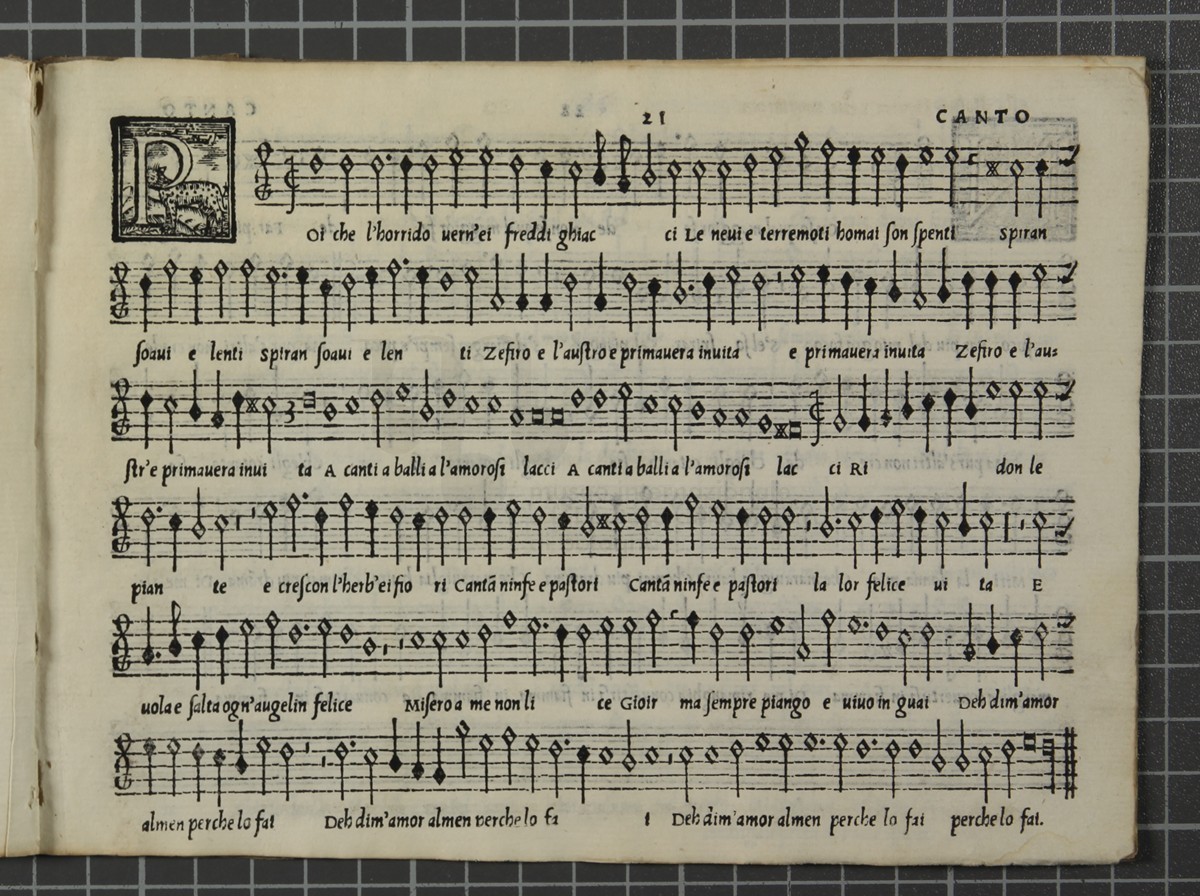 21
CANTO
POi che l'horrido uern'ei freddi ghiac ci Le neui e terremoti homai ſon ſpenti spiran
ſoaui e lenti spiran ſoaui e len ti Zefiro e l'auſtro e primauera inuita e primauera inuita Zefiro e l'au:
ſtr'e primauera inui ta A canti a balli a l'amoroſi lacci A canti a balli a l'amoroſi lac ci Ri don le
pian te e creſcon l'herb'ei fio ri Cantã ninfe e paſtori Cantã ninfe e paſtori la lor felice ui ta E
uola e ſalta ogn'augelin felice Miſero a me non li ce Gioir ma ſempre piango e uiuo in guai Deh dim'amor
almen perche lo fai Deh dim'amor almen perche lo fa i Deh dim'amor almen perche lo fai perche lo fai.